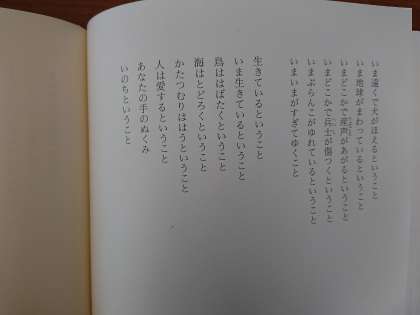 いま遠くで犬がほえるということ
いま地球がまわっているということ
いまどこかで産声があがるということ
いまどこかで兵士が傷つくということ
いまぶらんこがゆれているということ
いまいまがすぎてゆくこと
生きているということ
いま生きているということ
鳥ははばたくということ
海はとどろくということ
かたつむりははうということ
人は愛するということ
あなたの手のぬくみ
いのちということ